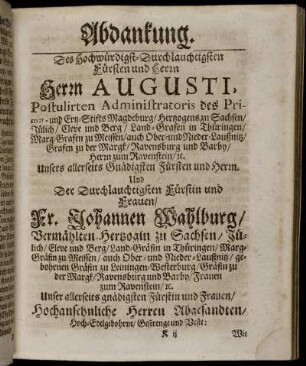 Abdankung.
Des Hochwürdigst-Durchlauchtigsten
Fürsten und Herrn
Herrn AUGUSTI,
Postulirten Administratoris des Pri-
mat- und Ertz-Stiffts Magdeburg/ Hertzogens zu Sachsen/
Jülich/ Cleve und Berg/ Land-Grafen in Thüringen/
Marg-Grafen zu Meissen/ auch Ober-und Nieder-Laußnitz/
Grafen zu der Marck/ Ravensburg und Barby/
Herrn zum Ravenstein/ ꝛc.
Unsers allerseits Gnädigsten Fürsten und Herrn.
Und
Der Durchlauchtigsten Fürstin und
Frauen/
Fr. Johannen Wahlburg/
Vermählten Hertzogin zu Sachsen/ Jü-
lich/ Cleve und Berg/ Land-Gräfin in Thüringen/ Marg-
Gräfin zu Meissen/ auch Ober- und Nieder-Laußnitz/ ge-
bohrnen Gräfin zu Leiningen-Westerburg/ Gräfin zu
der Marck/ Ravensburg und Barby/ Frauen
zum Ravenstein/ ꝛc.
Unser allerseits gnädigsten Fürstin und Frauen/
Hochansehnliche Herren Abgesandten/
Hoch-Edelgebohrne/ Gestrenge und Veste:
K ij Wie